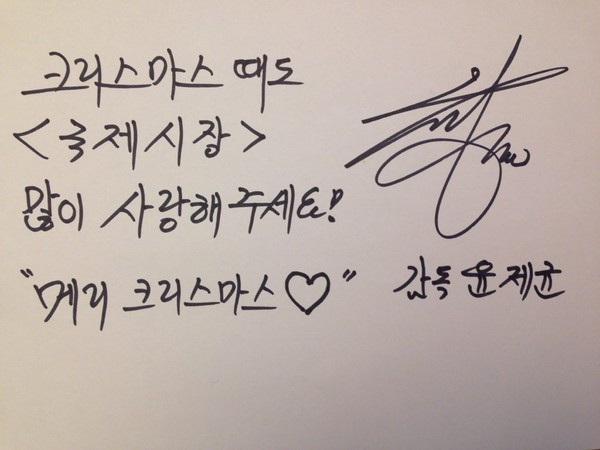 크리스마스 때도
<국제시장>
많이 사랑해주세요!
"메리 크리스마스♡"
감독 윤제균